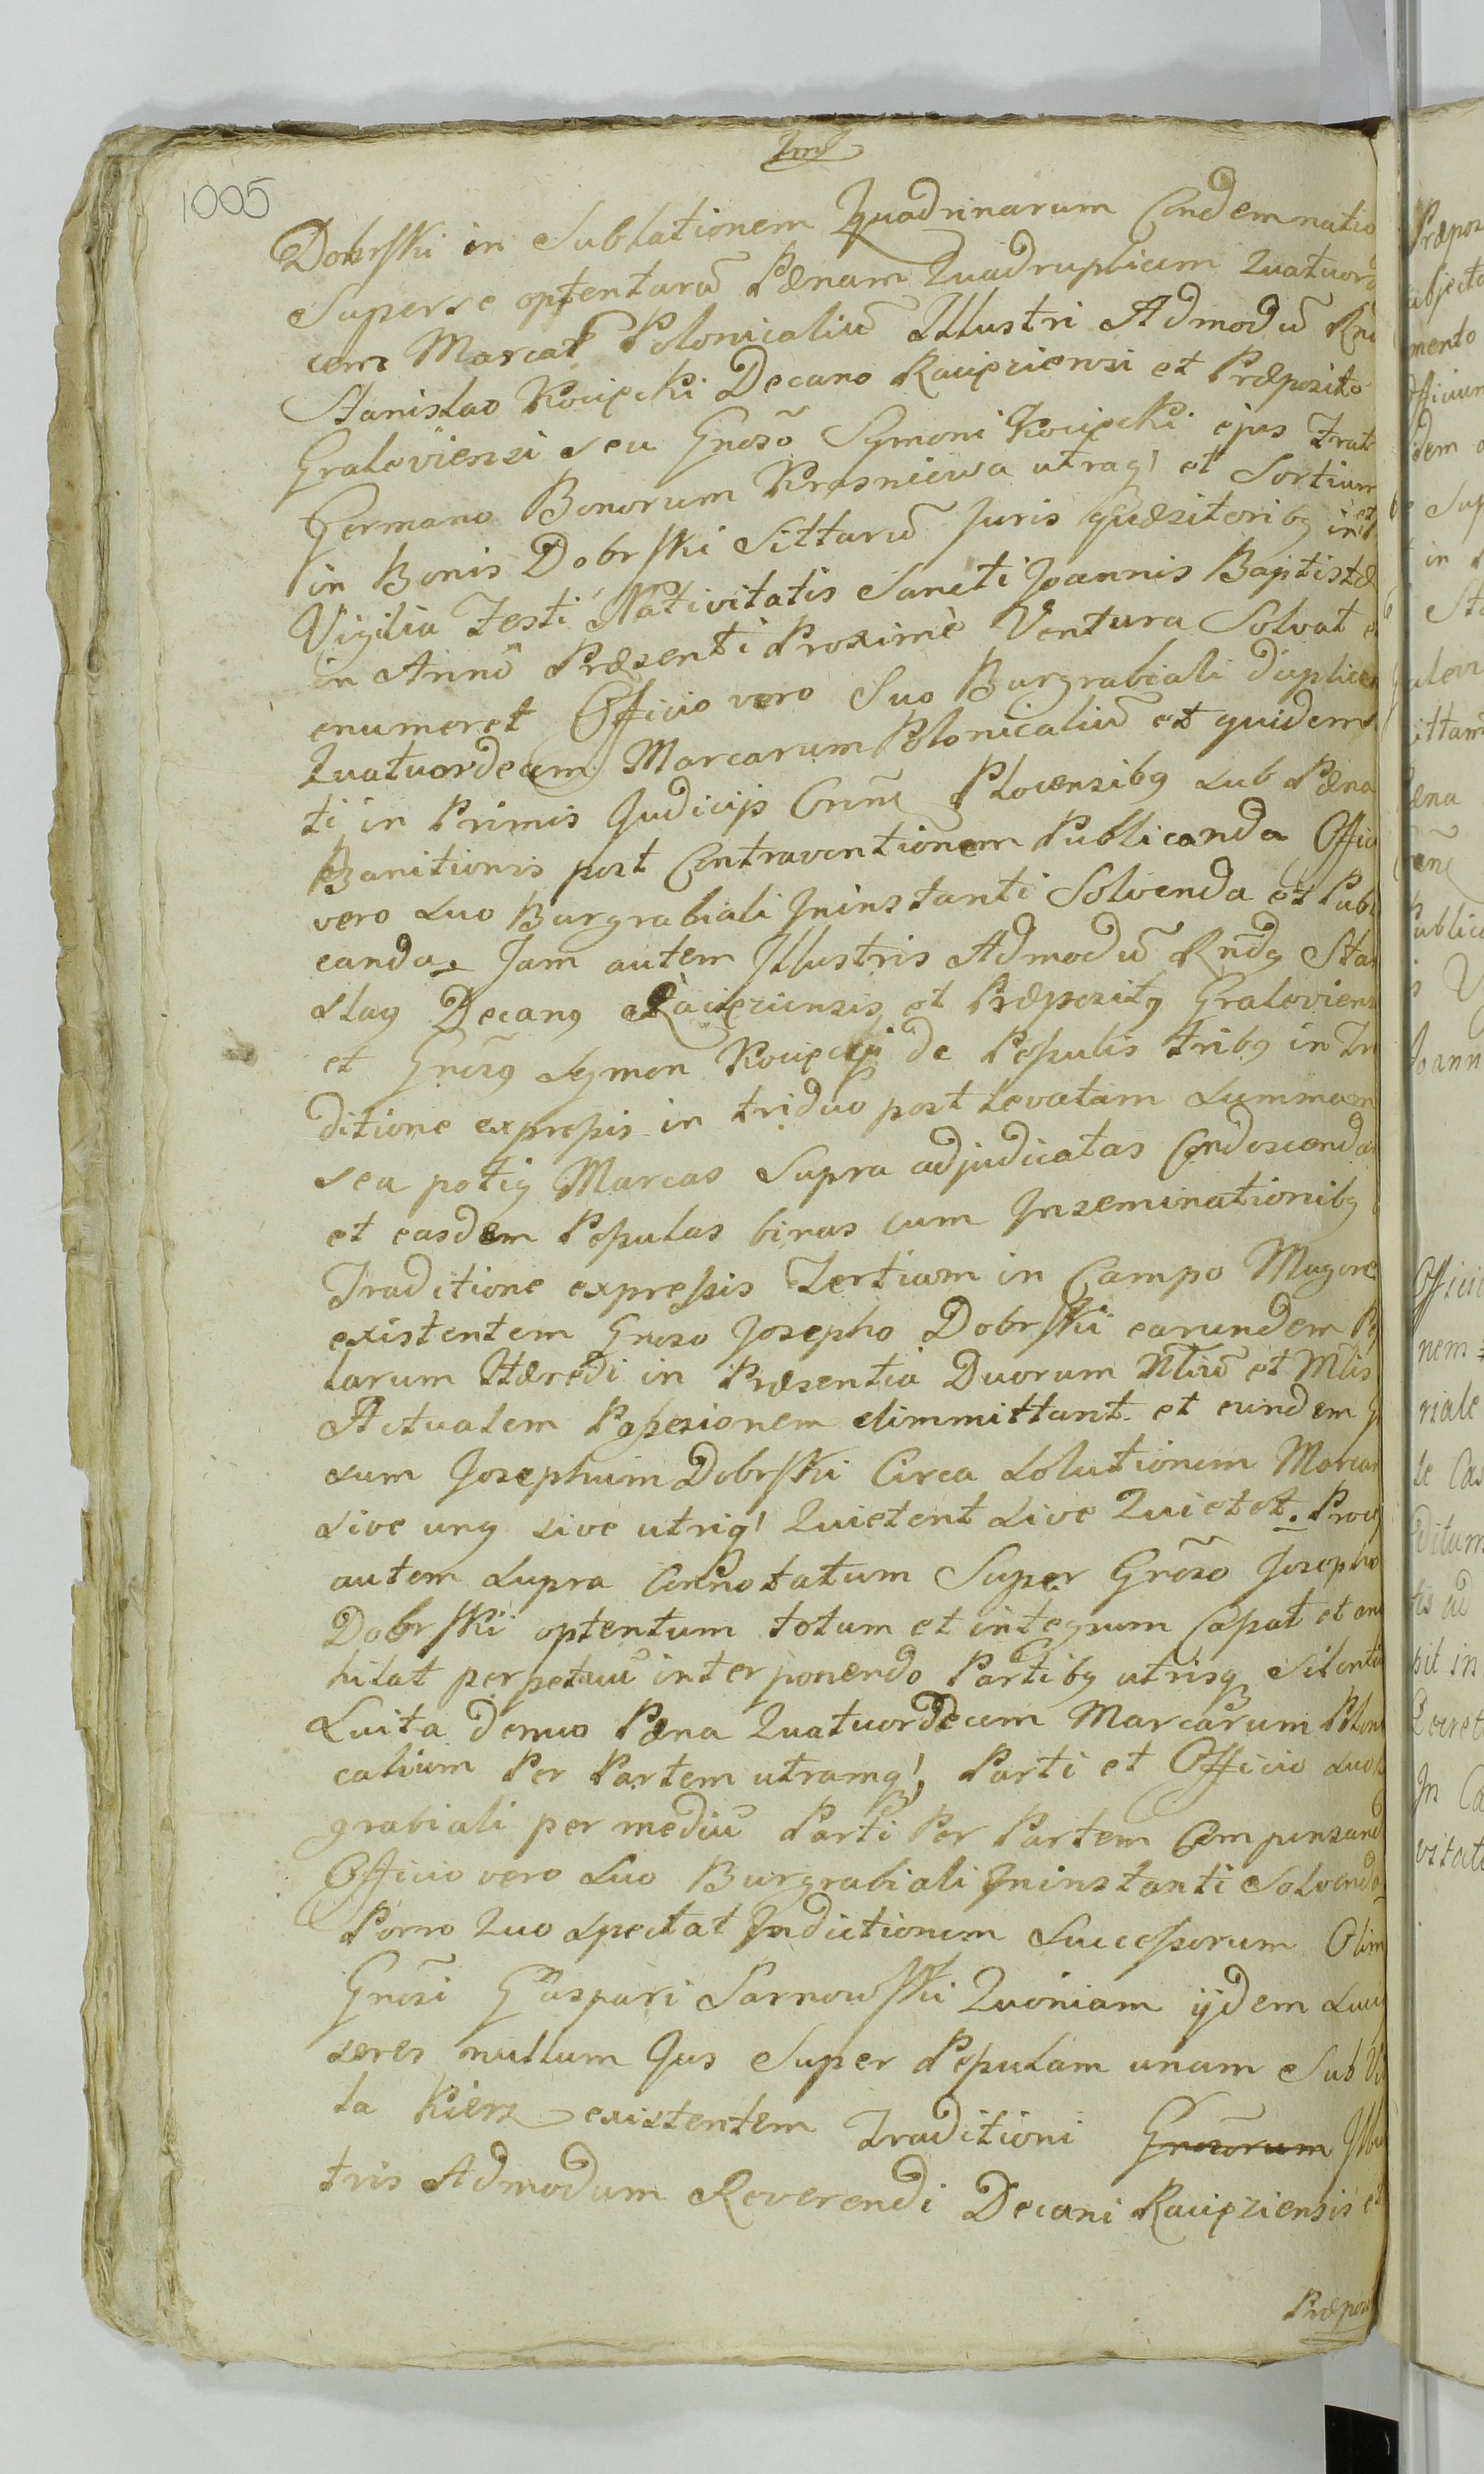 1005
Dobrski in Sublationem Quadrinarum Condemnatio
Super se optentarũ Pænam Quadruplicem Quatuord
cem Marcar Polonicaliũ Illustri Admodũ Rnd
Stanislao Kocięcki Decano Racięziensi et Præposito
Graloviensi seu Gnosõ Symoni Kocięcki ejus Frat
Germano Bonorum Krasniewa utraq' et Sortium
in Bonis Dobrski Sittarũ Juris quæsitoribq in et
Vigilia Festi Nativitatis Sancti Joannis Baptistæ
in Anno Præsenti Proximè Ventura Solvat et
enumeret Officio vero Suo Burgrabiali duplicem
Quatuordecim Marcarum Polonicaliũ et quidem
ti in Primis Judicijs Crñe Plocensibq sub Pæna
Banitionis post Contraventionem Publicanda Offic
vero suo Burgrabiali Ininstanti Solvenda et Publ
canda. Jam autem Illustris Admodũ Rndq Stan
slaq Decanq Racięziensis et Præpositq Graloviens
et Gnosq Symon Kocięcki de Populis tribq in Tra
ditione expressis in triduo post levatam Summam
seu potiq Marcas Supra adjudicatas Condescendan
et easdem Populas binas cum Inseminationibq
Traditione expressis Tertiam in Campo Magore
existentem Gnoso Josepho Dobrski earundem Po
larum Hæredi in Præsentia Duorum Nliũ et Mlis
Actualem Possesionem dimmittant et eundem G
sum Josephum Dobrski Circa Solutionem Marcar
sive unq sive utriq' Quietent sive Quietet. Proces
autem Supra Connotatum Super Gnõso Josepho
Dobrski optentum totum et integrum Capat et ani
hilat perpetuũ interponendo Partibq utrisq Silentiũ
Luita demo Pæna Quatuordecem Marcarum Poloni
calium Per Partem utramq', Parti et Officio suo B
grabiali per mediũ Parti Per Partem Compensand
Officio vero suo Burgrabiali Ininstanti Solvenda
Porro Quo Spectat Indictionem Successorum Olim
Gnõsi Gaspari Sarnowski Quoniam ijdem Succ
sores nullum Jus Super Populam unam Sub Vil
la Kierz existentem Traditioni Gnosõrum Illus
tris Admodum Reverendi Decani Racięziensis et
Præposi